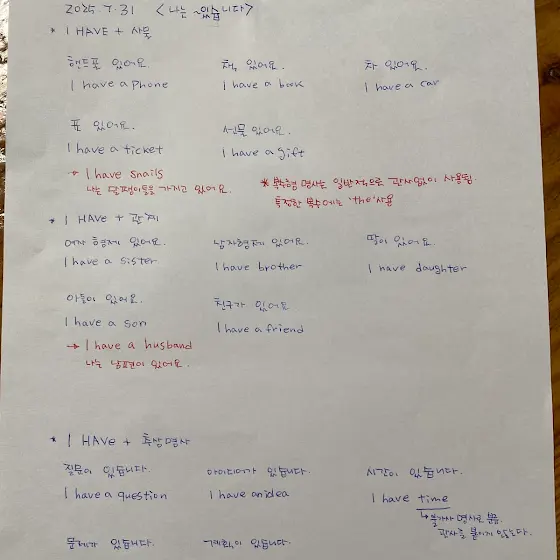 2025.7.31 <나는 ~있습니다>
* I HAVE + 사물
핸드폰 있어요. 책 있어요. 차 있어요.
I have a phone I have a book I have a car
표 있어요. 선물 있어요.
I have a ticket I have a gift
→ I have snails
나는 달팽이들을 가지고 있어요.
* 복수형 명사는 일반적으로 관사없이 사용됨.
특정한 복수에는 'the' 사용
* I HAVE + 관계
여자 형제 있어요. 남자형제 있어요. 딸이 있어요.
I have a sister I have brother I have daughter
아들이 있어요. 친구가 있어요
I have a son I have a friend
→ I have a husband
나는 남편이 있어요.
* I HAVE + 추상명사
질문이 있습니다. 아이디어가 있습니다. 시간이 있습니다.
I have a question I have an idea I have time
↳ 불가산 명사로 분류
관사를 붙이지 않는다.
문제가 있습니다. 계획이 있습니다.